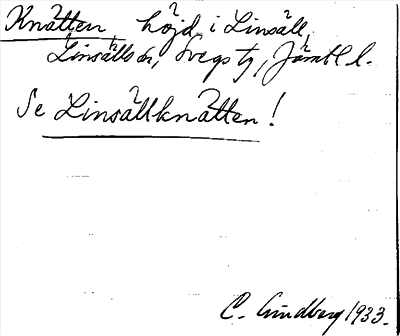 Knätten, höjd i Linsäll,
Linsälls sn, Svegs tg, Jämtl l.
Se Linsällknätten!
C. Lindberg 1933.